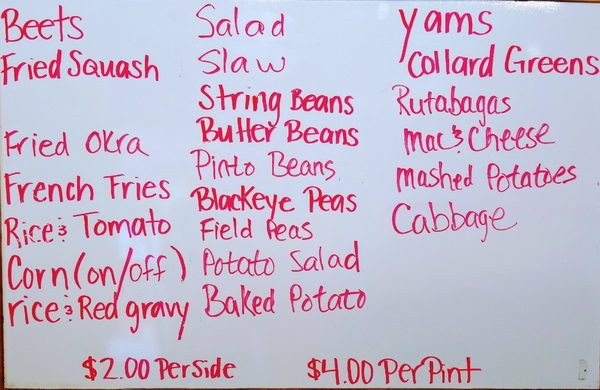 Beets
Fried Squash
Fried Okra
French Fries
Rice & Tomato
Corn (on/off)
rice & Red gravy
Salad
Slaw
String Beans
Butter Beans
Pinto Beans
Blackeye Peas
Field Peas
Potato Salad
Baked Potato
Yams
Collard Greens
Rutabagas
Mac & Cheese
mashed Potatoes
Cabbage
$2.00 Per Side
$4.00 Per Pint